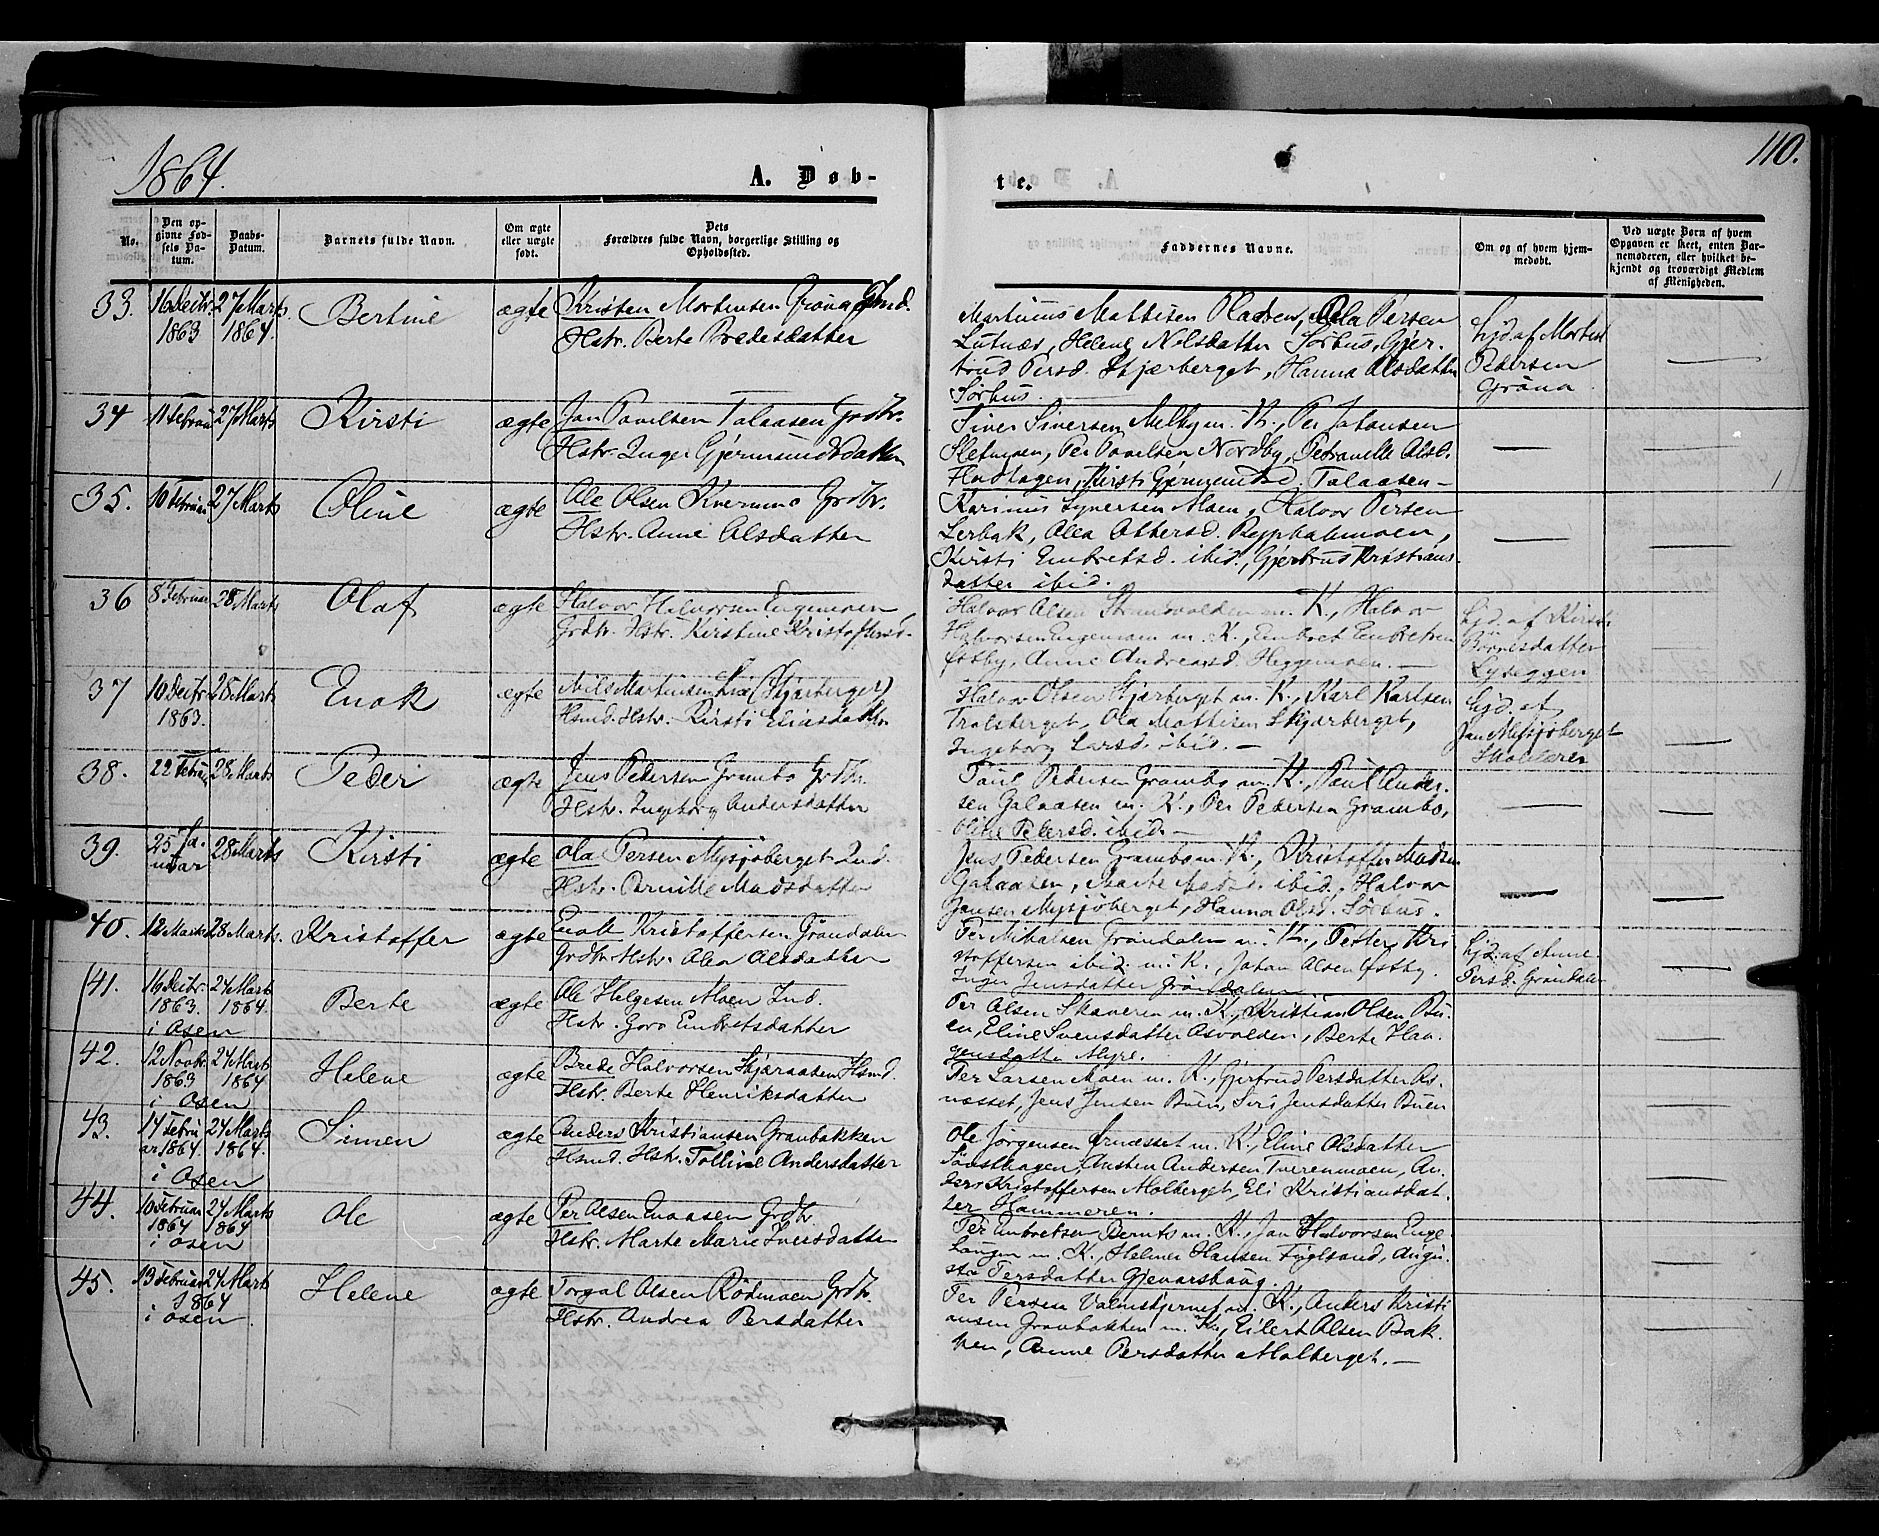 1864.
A. Døb-
te.
110.
No.
Den op-
givne Fød-
sels Da-
tum.
Daabs-
Datum.
Barnets fulde Navn.
Om ægte
eller uægte
født.
Dets
Forældres fulde Navn, borgerlige Stilling og
Opholdssted.
Faddernes Navne.
Om og af hvem hjem-
medøbt.
Ved uægte Børn af hvem
Opgaven er skeet, enten Bar-
nemoderen, eller hvilket be-
kjendt og troværdigt Medlem
af Menigheden.
33. 16 Decbr. 27 Marts Bertine ægte Kristen Mortensen Gröna Hsmd.
1863 1864. Hstr. Berte Bredesdatter
Martinus Mattisen Pladsen, Ola Persen
Lutnæs, Helene Nilsdatter Sörhus, Gjer-
trud Persd. Skjærberget, Hanna Olsdatter
Sörhus.
hjd. af Morten
Pedersen
Gröna
34 11 Februar 27 Marts Kirsti ægte Jan Povelsen Galaasen Grdbr.
Hstr. Inger Gjermundsdatter
Siver Siversen m. K., Per Johansen
Sletmoen, Per Povelsen Nordby, Petranelle Olsd.
Kirsti Gjermundsd. Galaasen —
35. 10 Februar 27 Marts Oline ægte Ole Olsen Kvernmo Grdbr.
Hstr. Anne Olsdatter
Karinus Syversen Moen, Halvor Persen
Lerbak, Olea Ottersd. Rysphalmoen,
Kirsti Embretsd. ibid., Gjertrud Kristians-
datter ibid.
36 8 Februar 28 Marts Olaf ægte Halvor Halvorsen Engemoen
Grdbr. Hstr. Kirstine Kristoffersd.
Halvor Olsen Strandvolden m. K., Halvor
Halvorsen Engemoen m. K., Embret Embretsen
Östby, Anne Andreasd. Heggemoen. —
hjd. af Kirsti
Börresdatter
Lyseggen
37 10 Decbr. 28 Marts Enok ægte Nils Martinsen Lie (Skjærberget)
1863. Hsmd. Hstr. Kirsti Eliasdatter
Halvor Olsen Skjærberget m. K., Karl Karlsen
Tralsberget, Ola Mattisen Skjærberget,
Ingeborg Larsd. ibid. —
hjd. af
Jan Mysjöberget
Skolelærer
38. 22 Februar 28 Marts Peder ægte Jens Pedersen Grambo Grdbr.
Hstr. Ingeborg Andersdatter
Paul Pedersen Grambo m. K., Paul Ander-
sen Galaasen m. K., Per Pedersen Grambo,
Oline Pedersd. ibid. —
39. 25 Ja- 28 Marts Kirsti ægte Ola Persen Mysjöberget Ind.
nuar Hstr. Pernille Madsdatter
Jens Pedersen Grambo m. K., Kristoffer Madsen
Galaasen, Marte Madsd. ibid., Halvor
Jansen Mysjöberget, Hanna Olsd. Sörhus.
40. 12 Marts 28 Marts. Kristoffer ægte Enok Kristoffersen Gröndalen
Grdbr. Hstr. Olea Olsdatter
Per Mikalsen Gröndalen m. K., Petter Kri-
stoffersen ibid. m. K., Johan Olsen Östby.
Inger Jensdatter Gröndalen
hjd. af Anne
Persd. Gröndalen
41. 16 Decbr. 24 Marts Berte ægte Ole Helgesen Moen Ind.
1863. 1864. Hstr. Goro Embretsdatter
i Osen
Per Olsen Skaveren m. K., Kristian Olsen Bu-
en, Eline Svensdatter Osvolden, Berte Haa-
gensdatter Myre.
42. 12 Novbr. 24 Marts Helene ægte Brede Halvorsen Skjæraasen Hsmd.
1863 1864 Hstr. Berte Henriksdatter
i Osen
Per Larsen Moen m. K., Gjertrud Persdatter Os-
næsset, Jens Jensen Buen, Siri Jensdatter Buen
43. 14 Febru- 24 Marts Simen ægte Anders Kristiansen Granbakken
ar 1864. 1864. Hsmd. Hstr. Tolline Andersdatter
i Osen
Ole Jörgensen Örnæsset m. K., Eline Olsdatter
Austen Andersen Tverenmoen, An-
ders Kristoffersen Molberget, Eli Kristiansdat-
ter Hammeren.
44. 10 Februar 24 Marts Ole ægte Per Olsen Enaasen Grdbr.
1864 1864 Hstr. Marte Marie Iversdatter
i Osen
Per Embretsen Bernts m. K., Jan Halvorsen Enge-
m. K., Helmer Hansen Fuglsand, Augu-
sta Persdatter Gjenarshaug.
45. 13 Februar 24 Marts Helene ægte Torgal Olsen Rödmoen Grdbr.
1864 Hstr. Andrea Persdatter
i Osen
Per Persen Valmstjernet m. K., Anders Kristi-
ansen Granbakken m. K., Eilert Olsen Bak-
ken, Anne Persdatter Molberget. —